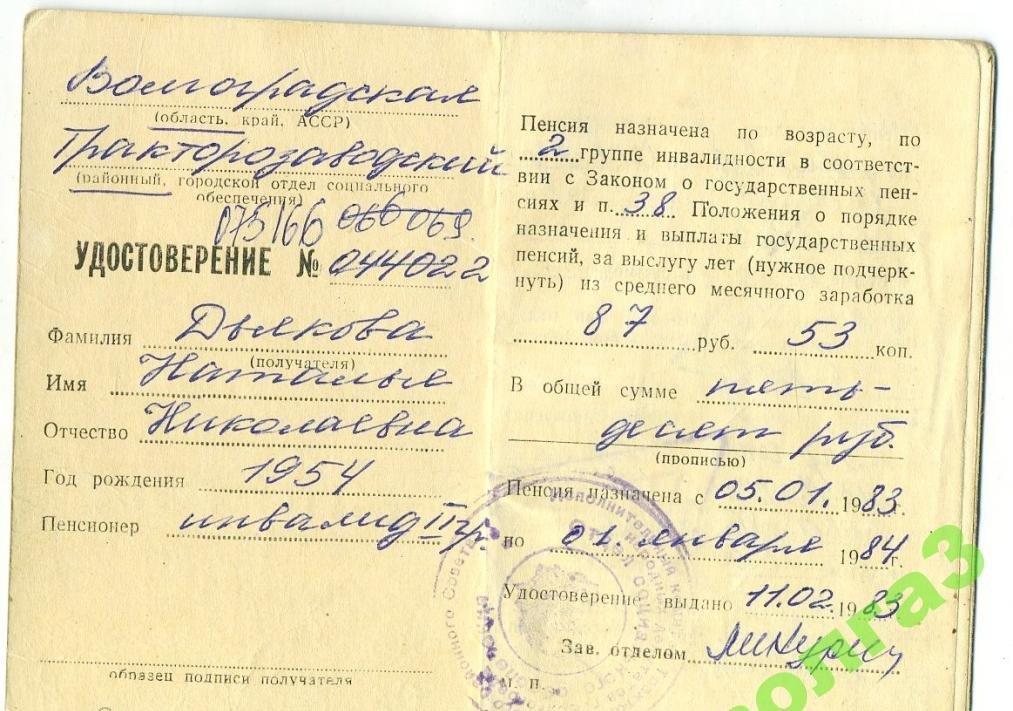 Волгоградская
(область, край, АССР)
Тракторозаводский
(районный, городской отдел социального
обеспечения)
075166 066069
УДОСТОВЕРЕНИЕ № 044022
Фамилия Дьякова
(получателя)
Имя Наталья
Отчество Николаевна
Год рождения 1954
Пенсионер инвалид II гр.
образец подписи получателя
Пенсия назначена по возрасту, по
2 группе инвалидности в соответст-
вии с Законом о государственных пен-
сиях и п. 38 Положения о порядке
назначения и выплаты государственных
пенсий, за выслугу лет (нужное подчерк-
нуть) из среднего месячного заработка
87 руб. 53 коп.
В общей сумме пять-
десят руб.
(прописью)
Пенсия назначена с 05.01. 1983 г.
по 01. января 1984 г.
Удостоверение выдано 11.02. 1983
Зав. отделом
м. п.